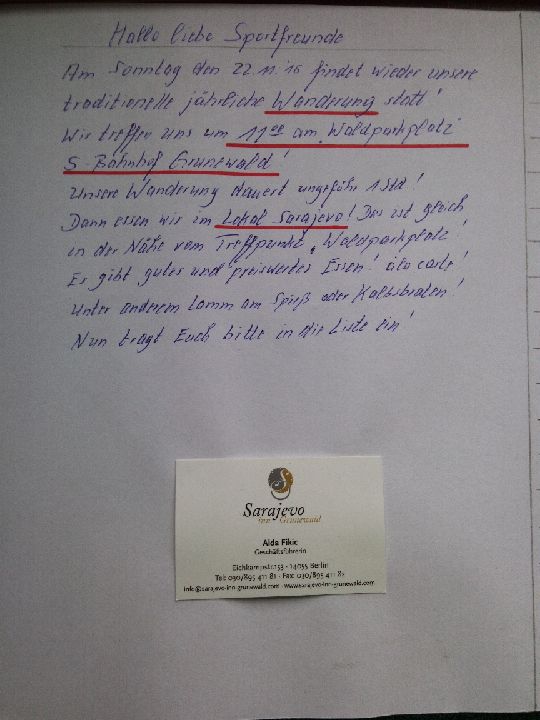 Hallo liebe Sportfreunde
Am Sonntag den 22.11.15 findet wieder unsere
traditionelle jährliche Wanderung statt!
Wir treffen uns um 11°° am "Waldparkplatz"
S-Bahnhof Grunewald!
Unsere Wanderung dauert ungefähr 1 Std!
Dann essen wir im Lokal Sarajevo! Das ist gleich
in der Nähe vom Treffpunkt "Waldparkplatz"!
Es gibt gutes und preiswertes Essen! ála carte!
Unter anderem Lamm am Spieß oder Kalbsbraten!
Nun tragt Euch bitte in die Liste ein!
Sarajevo
inn Grunewald
Aida Fikic
Geschäftsführerin
Eichkampstr.153 · 14055 Berlin
Tel: 030/895 411 81 · Fax: 030/895 411 82
info@sarajevo-inn-grunewald.com · www.sarajevo-inn-grunewald.com